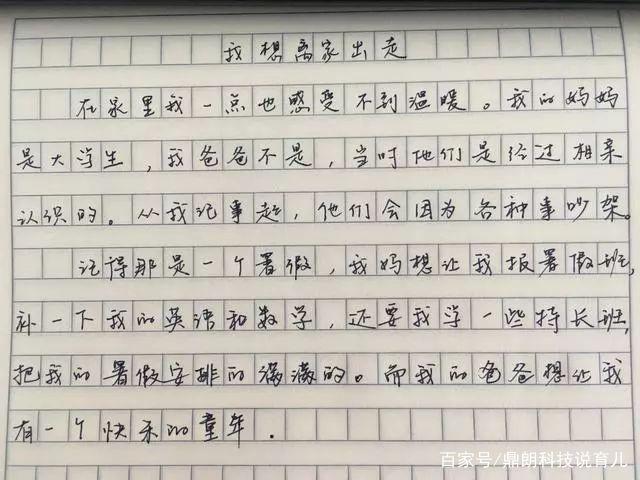 我想离家出走
在家里我一点也感受不到温暖。我的妈妈
是大学生，我爸爸不是，当时他们是经过相亲
认识的。从我记事起，他们会因为各种事吵架。
记得那是一个暑假，我妈想让我报暑假班，
补一下我的英语和数学，还要我学一些特长班，
把我的暑假安排的满满的。而我的爸爸想让我
有一个快乐的童年．
百家号/鼎朗科技说育儿